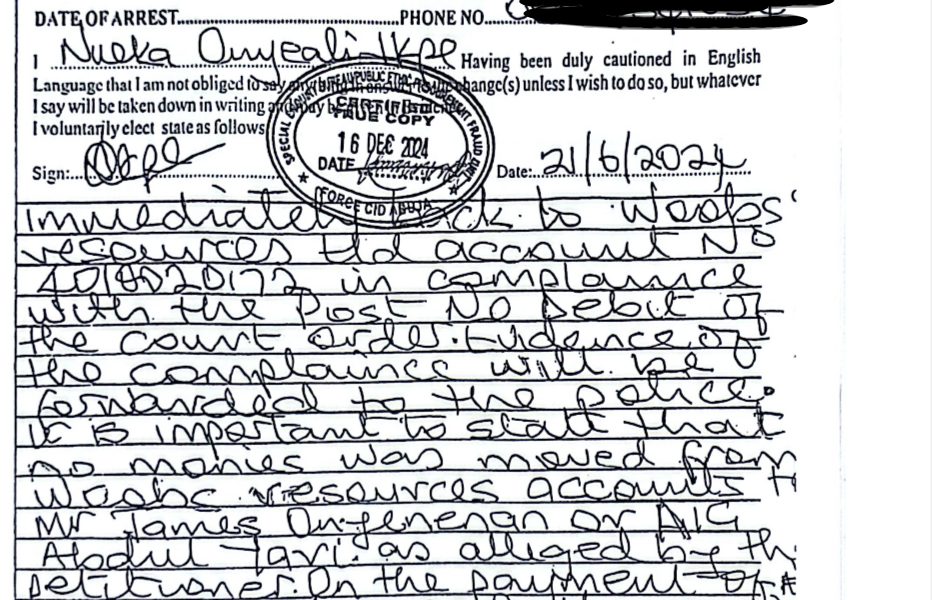 DATE OF ARREST..............................PHONE NO...
I Nneka Onyeali-Ikpe Having been duly cautioned in English
Language that I am not obliged to say anything in answer to the change(s) unless I wish to do so, but whatever
I say will be taken down in writing and may be
I voluntarily elect state as follows
SPECIAL ENQUIRY BUREAU/PUBLIC ETHIC PROCUREMENT FRAUD UNIT
CERTIFIED
TRUE COPY
16 DEC 2024
DATE
FORCE CID ABUJA
Sign:.. Date:..21/6/2024
immediately back to Woobs
resources Ltd account No
in complaince
with the Post No Debit of
the court order. Evidence of
the complaince will be
forwarded to the police.
It is important to state that
no monies was moved from
resources accounts
Mr James or AIG
Abdul as alleged by
petitioner. On the payment of